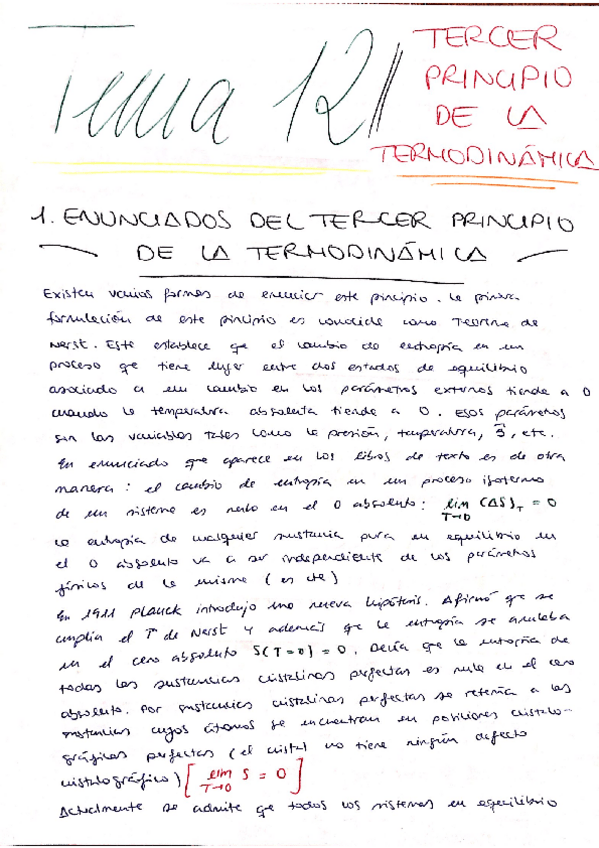 Tema 12
TERCER
PRINCIPIO
DE LA
TERMODINÁMICA
1. ENUNCIADOS DEL TERCER PRINCIPIO
DE LA TERMODINÁMICA
Existen varias formas de enunciar este principio. La primera
formulación de este principio es conocida como Teorema de
Nerst. Este establece que el cambio de entropía en un
proceso que tiene lugar entre dos estados de equilibrio
asociado a un cambio en los parámetros externos tiende a 0
cuando la temperatura absoluta tiende a 0. Esos parámetros
son las variables tales como la presión, temperatura, etc.
En enunciado que aparece en los libros de texto es de otra
manera: el cambio de entropía en un proceso isotermo
de un sistema es nulo en el 0 absoluto: lim (ΔS)_T = 0
T→0
La entropía de cualquier sustancia pura en equilibrio en
el 0 absoluto va a ser independiente de los parámetros
físicos de la misma (es cte)
En 1911 Planck introdujo una nueva hipótesis. Afirmó que se
cumplía el Tª de Nerst y además que la entropía se anulaba
en el cero absoluto S(T=0) = 0. Decía que la entropía de
todas las sustancias cristalinas perfectas es nula en el cero
absoluto. Por sustancias cristalinas perfectas se refería a las
sustancias cuyos átomos se encuentran en posiciones cristalo-
gráficas perfectas (el cristal no tiene ningún defecto
cristalográfico) [lim S = 0]
T→0
Actualmente se admite que todos los sistemas en equilibrio